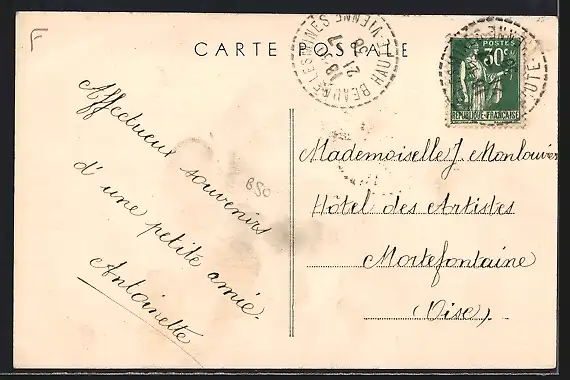 F
CARTE POSTALE
POSTES
30c
REPUBLIQUE-FRANÇAISE
Affectueux souvenirs
d'une petite amie.
Antoinette
850
Mademoiselle J. Monlouvier
Hôtel des Artistes
Mortefontaine
(Oise).